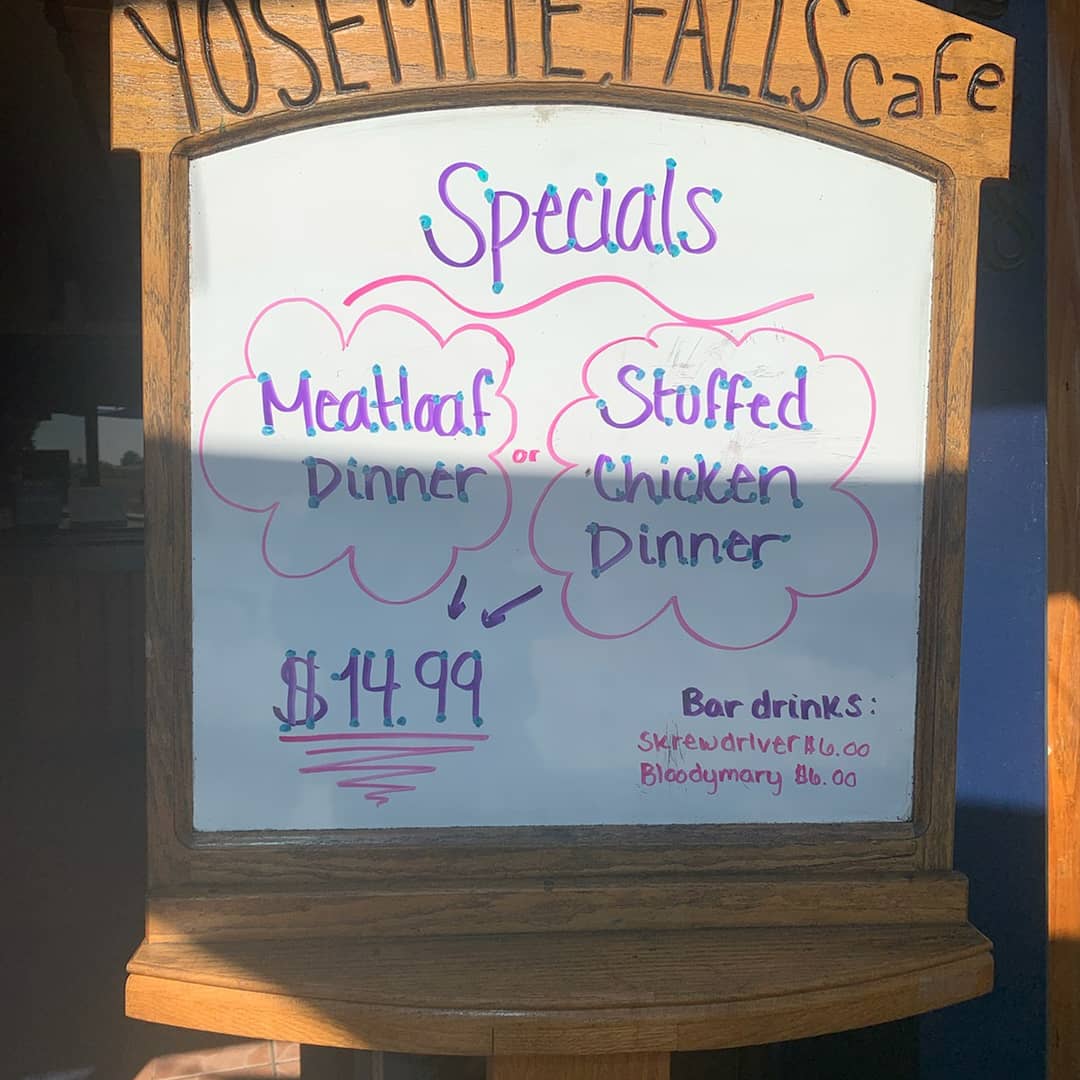 YOSEMITE FALLS Cafe
Specials
Meatloaf
Dinner
or
Stuffed
Chicken
Dinner
$14.99
Bar drinks:
Skrewdriver $6.00
Bloodymary $6.00